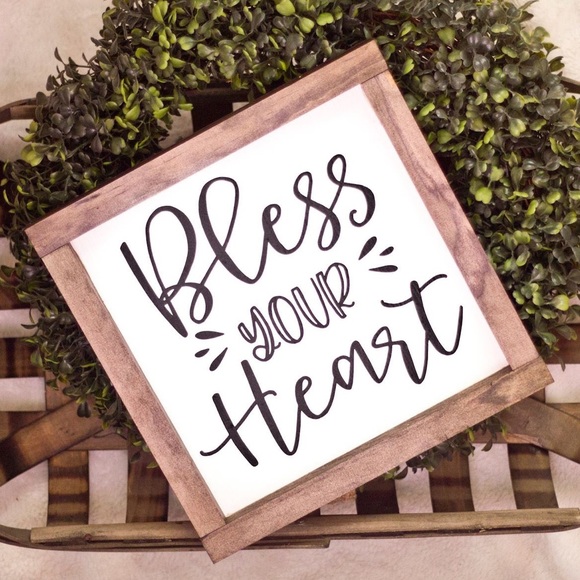 Bless
YOUR
Heart